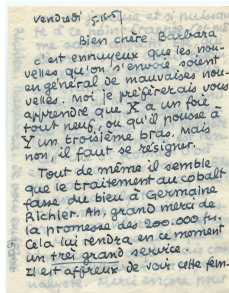 vendredi 5.IV.57
Bien chère Barbara
c'est ennuyeux que les nou-
velles qu'on s'envoie soient
en général de mauvaises nou-
velles. Moi je préférerais vous
apprendre que X a un foie
tout neuf, ou qu'il pousse à
Y un troisième bras. Mais
non, il faut se résigner.
Tout de même il semble
que le traitement au cobalt
fasse du bien à Germaine
Richier. Ah, grand merci de
la promesse des 200.000 frs.
Cela lui rendra en ce moment
un très grand service.
Il est affreux de voir cette fem-